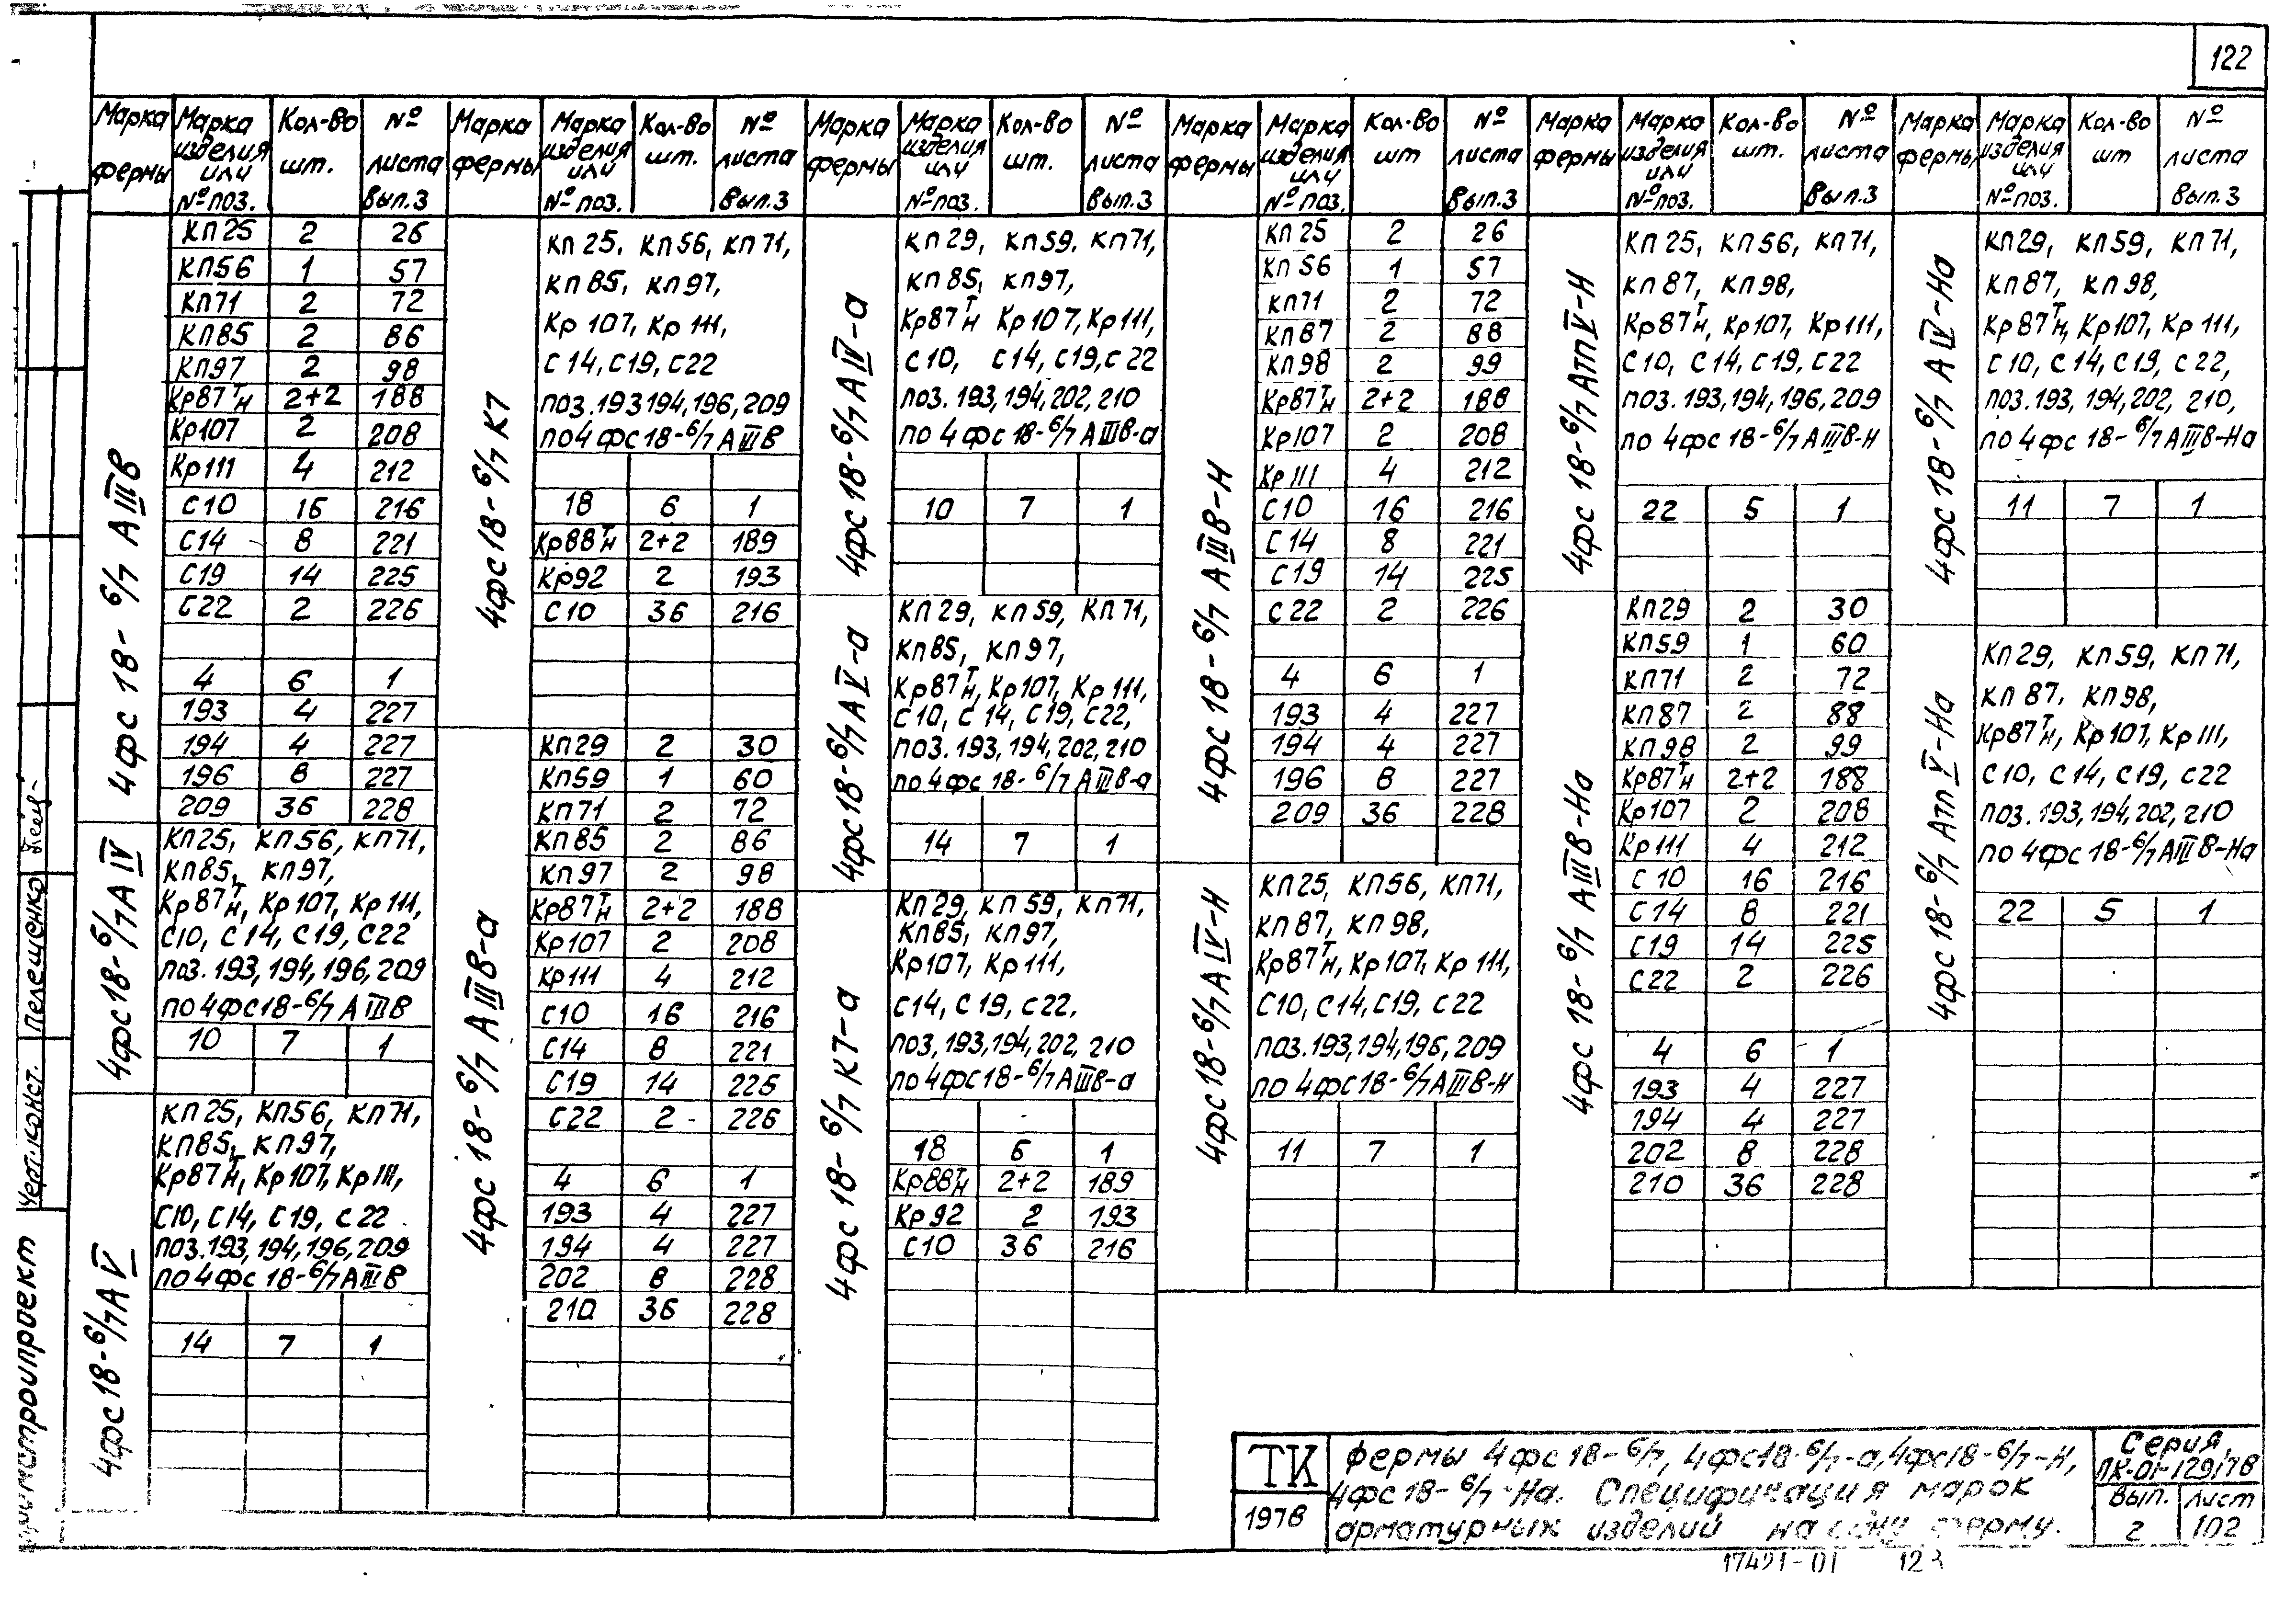 122
Марка фермы | Марка изделия или № поз. | Кол-во шт. | № листа Вып.3
4фс 18-6/7 АIIIв
КП25 2 26
КП56 1 57
КП71 2 72
КП85 2 86
КП97 2 98
Кр87Тн 2+2 188
Кр107 2 208
Кр111 4 212
С10 16 216
С14 8 221
С19 14 225
С22 2 226
4 6 1
193 4 227
194 4 227
196 8 227
209 36 228
4фс18-6/7АIV
КП25, КП56, КП71,
КП85, КП97,
Кр87Тн, Кр107, Кр111,
С10, С14, С19, С22
поз. 193, 194, 196, 209
по 4фс18-6/7 АIIIв
10 7 1
4фс18-6/7АV
КП25, КП56, КП71,
КП85, КП97,
Кр87Тн, Кр107, Кр111,
С10, С14, С19, С22
поз. 193, 194, 196, 209
по 4фс 18-6/7АIIIв
14 7 1
Марка фермы | Марка изделия или № поз. | Кол-во шт. | № листа Вып.3
4фс18-6/7 К7
КП25, КП56, КП71,
КП85, КП97,
Кр107, Кр111,
С14, С19, С22
поз.193 194, 196, 209
по 4фс18-6/7 АIIIв
18 6 1
Кр88Тн 2+2 189
Кр92 2 193
С10 36 216
4фс 18-6/7 АIIIв-а
КП29 2 30
КП59 1 60
КП71 2 72
КП85 2 86
КП97 2 98
Кр87Тн 2+2 188
Кр107 2 208
Кр111 4 212
С10 16 216
С14 8 221
С19 14 225
С22 2 226
4 6 1
193 4 227
194 4 227
202 8 228
210 36 228
Марка фермы | Марка изделия или № поз. | Кол-во шт. | № листа Вып.3
4фс 18-6/7 АIV-а
КП29, КП59, КП71,
КП85, КП97,
Кр87Тн Кр107, Кр111,
С10, С14, С19, С22
поз. 193, 194, 202, 210
по 4фс 18-6/7 АIIIв-а
10 7 1
4фс18-6/7 АV-а
КП29, КП59, КП71,
КП85, КП97,
Кр87Тн, Кр107, Кр111,
С10, С14, С19, С22,
поз. 193, 194, 202, 210
по 4фс 18-6/7 АIIIв-а
14 7 1
4фс 18-6/7 К7-а
КП29, КП59, КП71,
КП85, КП97,
Кр107, Кр111,
С14, С19, С22,
поз, 193, 194, 202, 210
по 4фс18-6/7АIIIв-а
18 6 1
Кр88Тн 2+2 189
Кр92 2 193
С10 36 216
Марка фермы | Марка изделия или № поз. | Кол-во шт | № листа Вып.3
4фс 18-6/7 АIIIв-Н
КП25 2 26
КП56 1 57
КП71 2 72
КП87 2 88
КП98 2 99
Кр87Тн 2+2 188
Кр107 2 208
Кр111 4 212
С10 16 216
С14 8 221
С19 14 225
С22 2 226
4 6 1
193 4 227
194 4 227
196 8 227
209 36 228
4фс18-6/7АIV-Н
КП25, КП56, КП71,
КП87, КП98,
Кр87Тн, Кр107, Кр111,
С10, С14, С19, С22
поз. 193, 194, 196, 209
по 4фс18-6/7АIIIв-Н
11 7 1
Марка фермы | Марка изделия или № поз. | Кол-во шт. | № листа Вып.3
4фс 18-6/7 АтпV-Н
КП25, КП56, КП71,
КП87, КП98,
Кр87Тн, Кр107, Кр111,
С10, С14, С19, С22
поз. 193, 194, 196, 209
по 4фс 18-6/7АIIIв-Н
22 5 1
4фс 18-6/7 АIIIв-На
КП29 2 30
КП59 1 60
КП71 2 72
КП87 2 88
КП98 2 99
Кр87Тн 2+2 188
Кр107 2 208
Кр111 4 212
С10 16 216
С14 8 221
С19 14 225
С22 2 226
4 6 1
193 4 227
194 4 227
202 8 228
210 36 228
Марка фермы | Марка изделия или № поз. | Кол-во шт | № листа Вып.3
4фс 18-6/7 АIV-На
КП29, КП59, КП71,
КП87, КП98,
Кр87Тн, Кр107, Кр111,
С10, С14, С19, С22,
поз. 193, 194, 202, 210,
по 4фс 18-6/7АIIIв-На
11 7 1
4фс 18-6/7 АтпV-На
КП29, КП59, КП71,
КП87, КП98,
Кр87Тн, Кр107, Кр111,
С10, С14, С19, С22
поз. 193, 194, 202, 210
по 4фс 18-6/7АIIIв-На
22 5 1
Черт.-конст. Пелещенко
ТК
1978
фермы 4фс18-6/7, 4фс18-6/7-а, 4фс18-6/7-Н,
4фс18-6/7-На. Спецификация марок
арматурных изделий на одну ферму.
Серия
ПК-01-129/78
Вып. Лист
2 102
17421-01 123